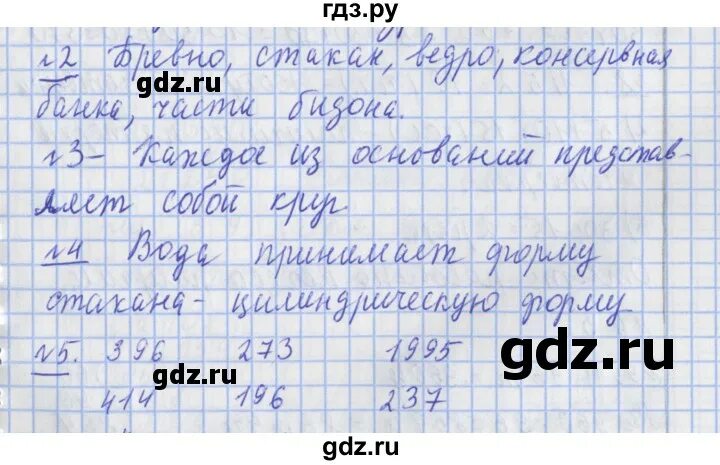 гдз.ру
№2 Бревно, стакан, ведро, консервная
банка, части бидона.
gdz.ru
№3- Каждое из оснований представ-
ляет собой круг
№4 Вода принимает форму
gdz.ru
стакана- цилиндрическую форму
№5. 396 273 1995
gdz.ru
gdz.ru
414 196 237
gdz.ru